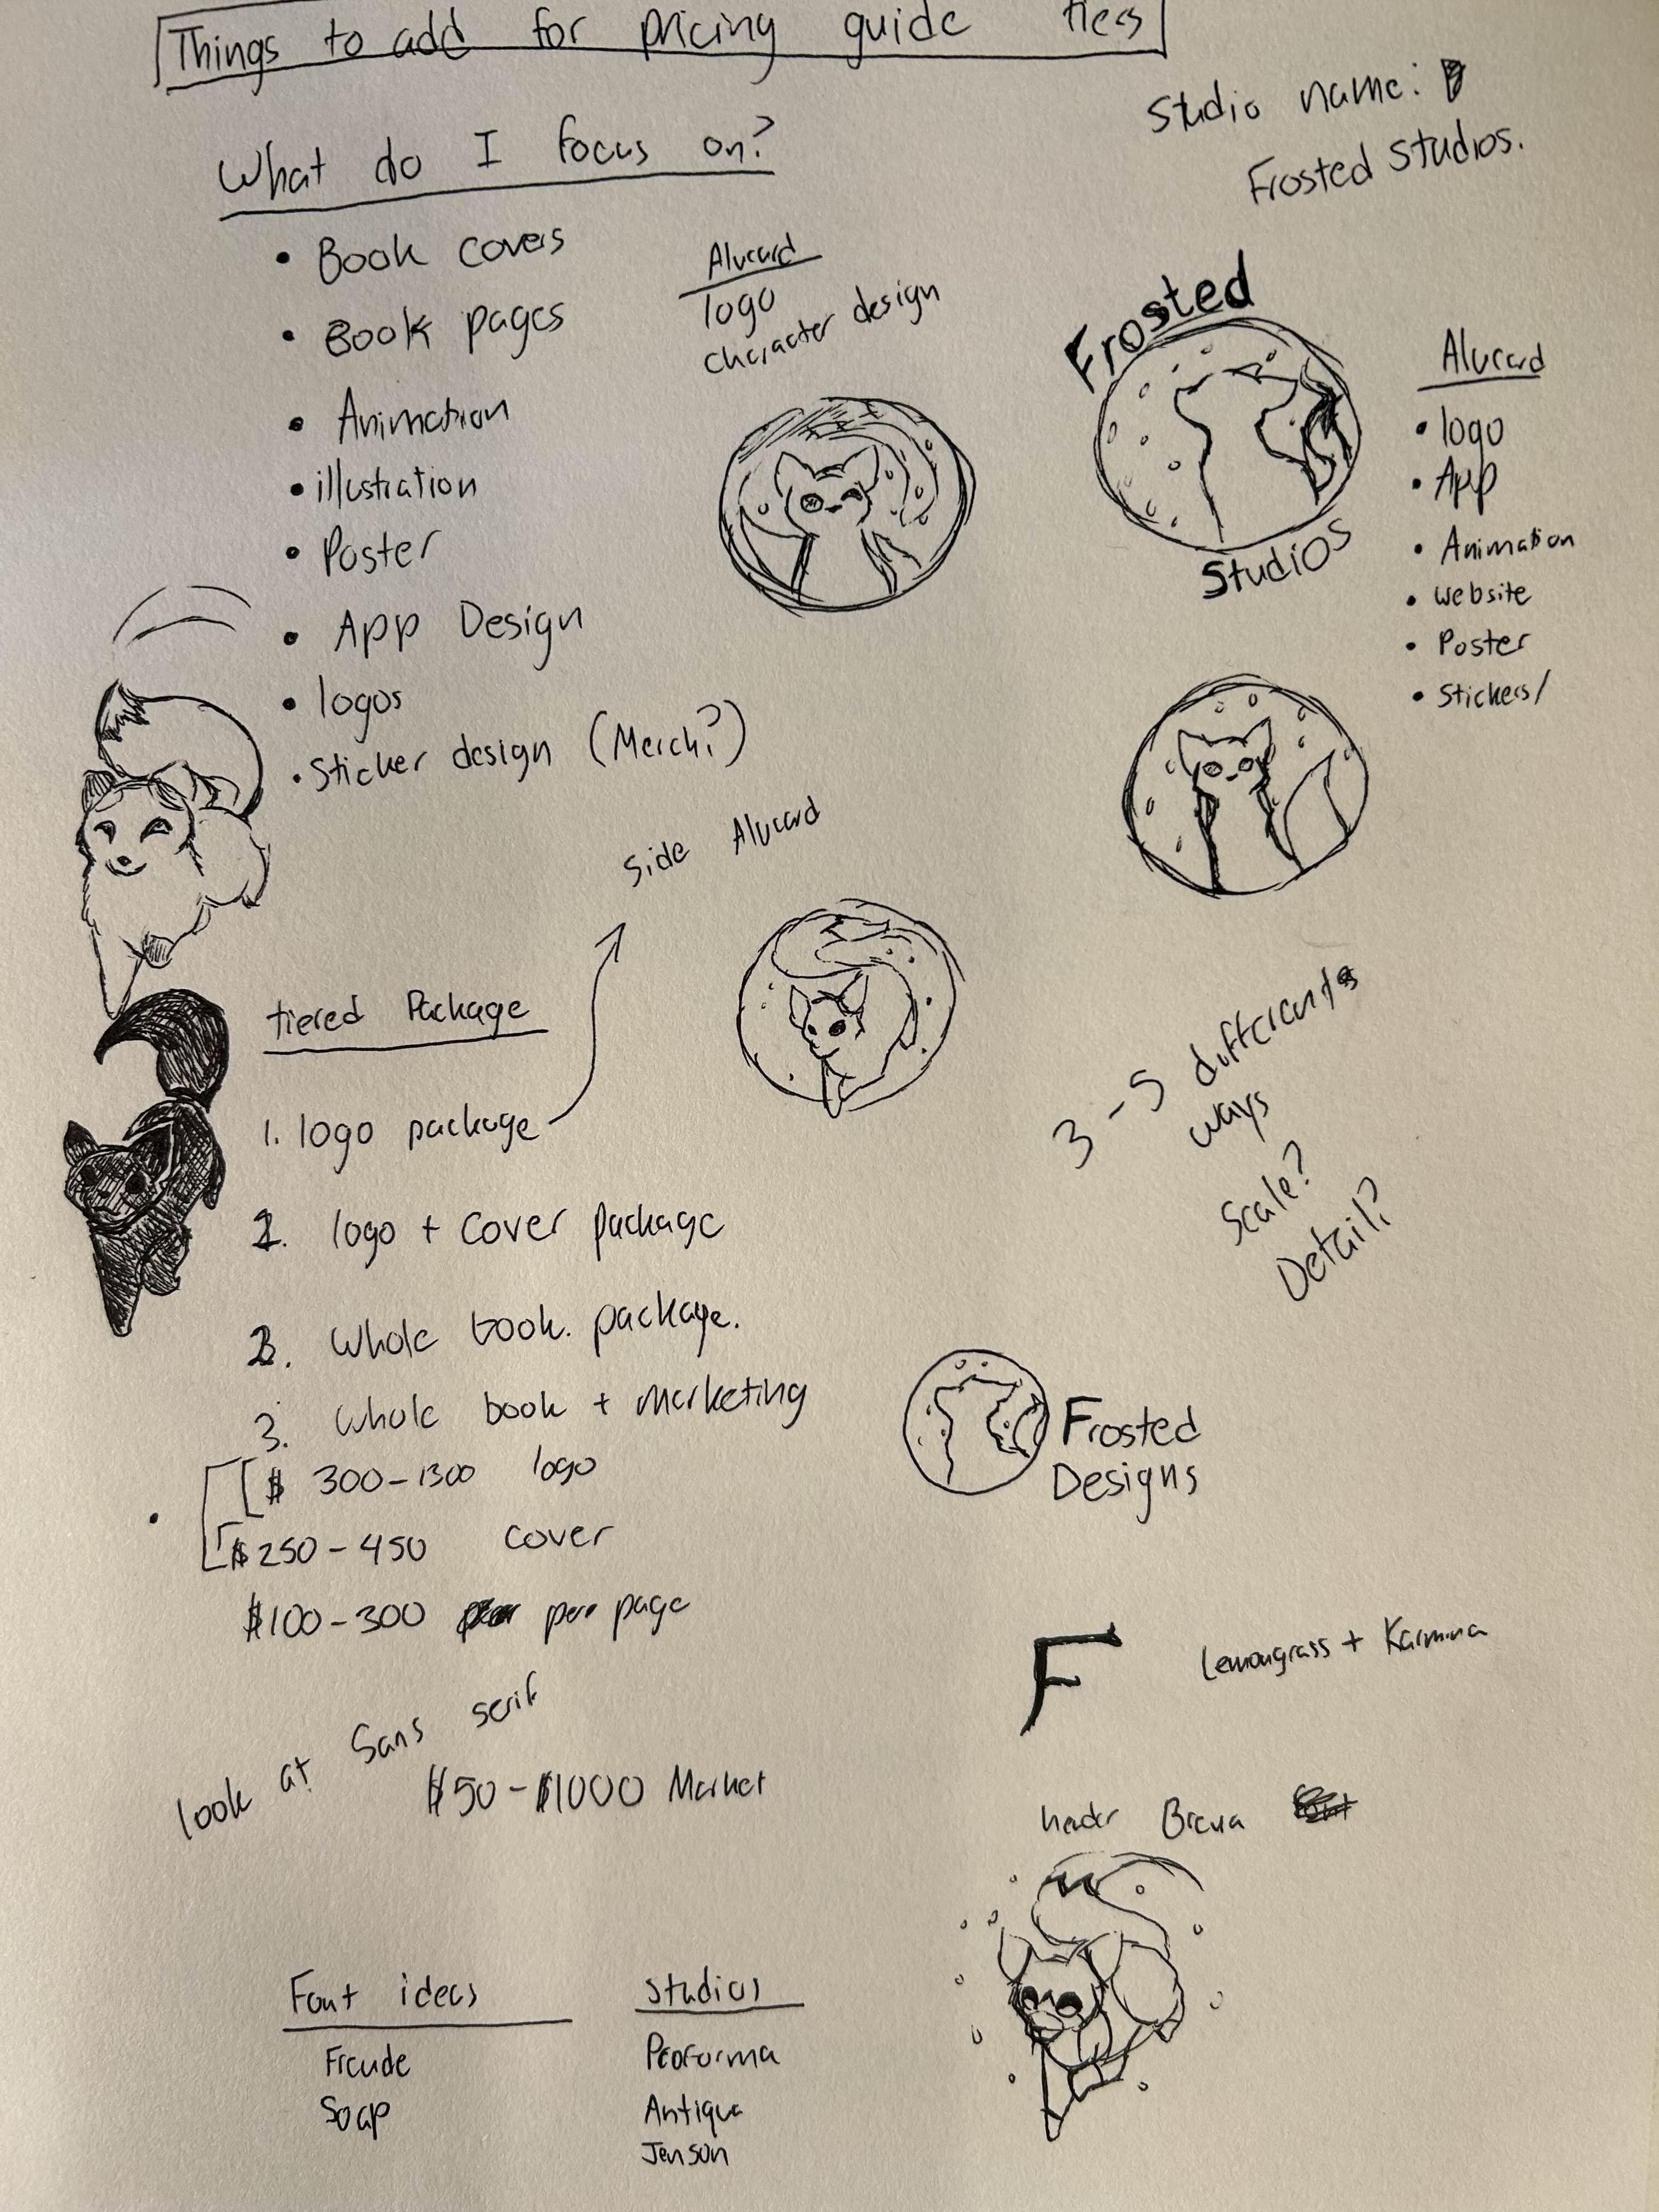 Things to add for pricing guide tiers
Studio name:
Frosted Studios.
What do I focus on?
• Book covers
• Book pages
• Animation
• illustration
• Poster
• App Design
• logos
• Sticker design (Merch?)
Alucard
logo
character design
Frosted
Studios
Alucard
• logo
• App
• Animation
• website
• Poster
• Stickers/
side Alucard
tiered Package
1. logo package
2. logo + cover package
3. Whole book. package.
3. whole book + marketing
$ 300-1300 logo
$250-450 cover
$100-300 per page
3-5 differents
ways
Scale?
Detail?
Frosted
Designs
look at Sans serif
$50-$1000 Market
F
Lemongrass + Karmina
header
Font ideas
Freude
Soap
Studios
Proforma
Antiqua
Jenson